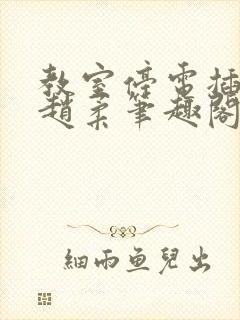 教室停電插
趙柔筆趣閣
細雨魚兒出